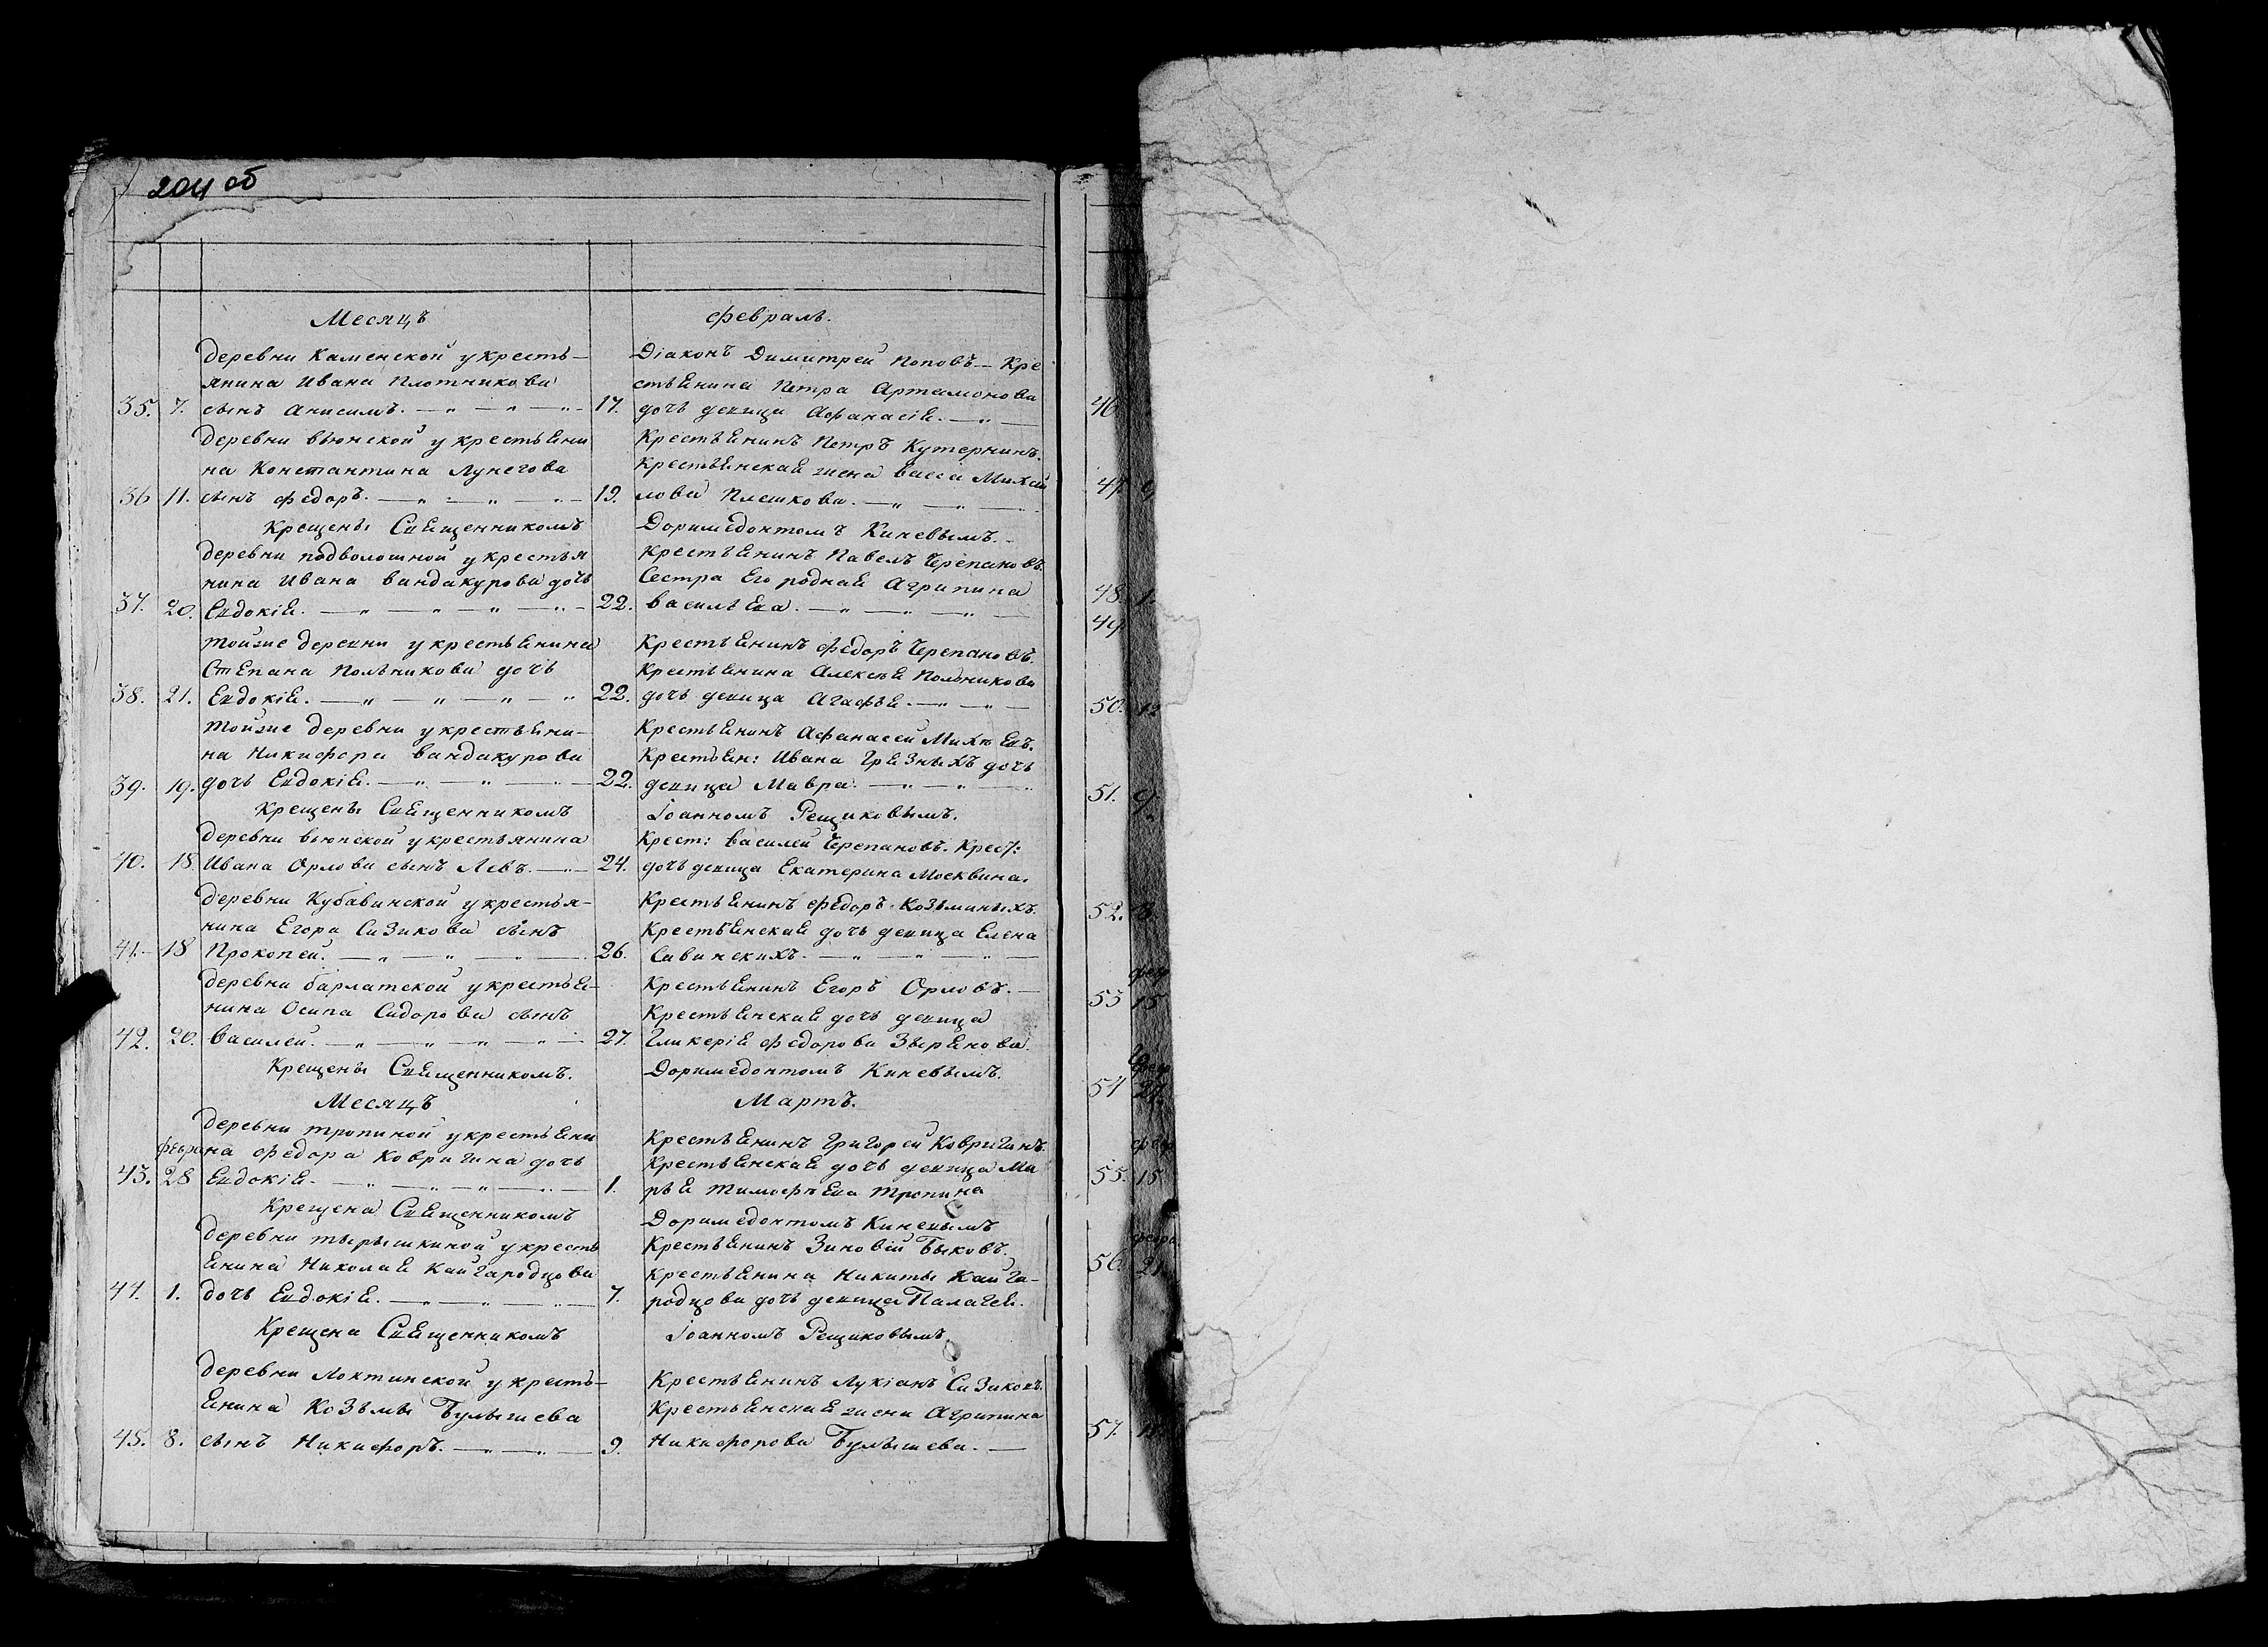 204 об
Месяцъ февраль.
деревни Каменской у кресть-
янина Ивана Плотникова
35. 7. сынъ Анисимъ. 17.
Діаконъ Димитрей Поповъ — Кре
стьянина Петра Артамонова
дочь девица Афанасія.
деревни вьюнской у крестьяни
на Константина Лунегова
36 11. сынъ Федоръ. 19.
Крестьянинъ Петръ Кутернинъ.
Крестьянская жена Васса Михаи
лова Плешкова.
Крещены Священникомъ Доримедонтомъ Киневымъ.
деревни подволошной у крестья
нина Ивана вандакурова дочь
37. 20. Евдокія. 22.
Крестьянинъ Павелъ Черепановъ.
Сестра Его родная Агрипина
васильева.
тойже деревни у крестьянина
Степана Польникова дочь
38. 21. Евдокія. 22.
Крестьянинъ Федоръ Черепановъ.
Крестьянина Алексея Польникова
дочь девица Агафья.
тойже деревни у крестьяни-
на Никифора вандакурова
39. 19. дочь Евдокія. 22.
Крестьянинъ Афанасей Михеевъ.
Крестьян: Ивана Грязныхъ дочь
девица Мавра.
Крещены Священникомъ Іоанномъ Рещиковымъ.
деревни вьюнской у крестьянина
40. 18. Ивана Орлова сынъ Левъ. 24.
Крест: василей Черепановъ. Крест:
дочь девица Екатерина Москвина.
деревни Кубавинской у крестья-
нина Егора Сизикова сынъ
41. 18 Прокопей. 26.
Крестьянинъ Федоръ Козьминыхъ.
Крестьянская дочь девица Елена
Савинскихъ.
деревни барлатской у крестья-
нина Осипа Сидорова сынъ
42. 20. василей. 27.
Крестьянинъ Егоръ Орловъ.
Крестьянская дочь девица
Гликерія Федорова Зырянова.
Крещены Священникомъ. Доримедонтомъ Киневымъ.
Месяцъ Мартъ.
деревни тропиной у крестьяни
февра на Федора Ковригина дочь
43. 28 Евдокія. 1.
Крестьянинъ Григорей Ковригинъ.
Крестьянская дочь девица Ма
рья тимофеева тропина
Крещена Священникомъ Доримедонтомъ Киневымъ
деревни тырышкиной у кресть
янина Николая Кайгародцова
44. 1. дочь Евдокія. 7.
Крестьянинъ Зиновій Быковъ.
Крестьянина Никиты Кайга-
родцова дочь девица Палагея.
Крещена Священникомъ Іоанномъ Рещиковымъ
деревни Локтинской у кресть-
янина Козьмы Булышева
45. 8. сынъ Никифоръ. 9.
Крестьянинъ Лукіанъ Сизиковъ.
Крестьянская жена Агрипина
Никифорова Булышева.
46
47.
48. 1.
49
50. 12
51. 9.
52.
53 15
54
55. 15
56. 21
57.